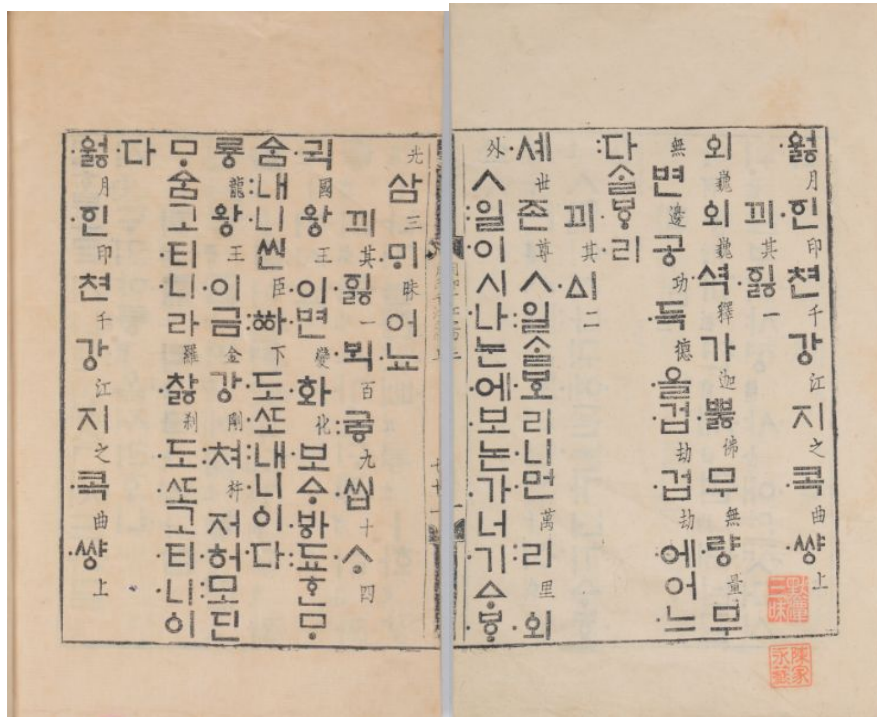 웛月ᅙᅵᆫ印쳔千강江지之콕曲쌰ᇰ上
끠其ᅙᅵᇙ一
외巍외巍셕釋가迦뿌ᇙ佛무無량量무
無변邊공功득德을겁劫겁劫에어느
다ᄉᆞᆯᄫᆞ리
끠其ᅀᅵ二
셰世존尊ㅅ일ᄉᆞᆯᄫᅩ리니먼萬리里외
外ㅅ일이시나눈에보논가너기ᅀᆞᄫᆞ
光삼三ᄆᆡ昧어뇨
끠其ᅙᅵᇙ一ᄇᆡᆨ百구ᇢ九씹十ᄉᆞ四
귁國왕王이변變화化보ᅀᆞᄫᅡ됴ᄒᆞᆫᄆᆞ
ᅀᆞᆷ내니씬臣ᅘᅡ下도ᄯᅩ내니이다
룡龍왕王이금金강剛쳐杵저허모딘
ᄆᆞᅀᆞᆷ고티니라羅차ᇙ刹도ᄯᅩ고티니이
다
웛月ᅙᅵᆫ印쳔千강江지之콕曲쌰ᇰ上